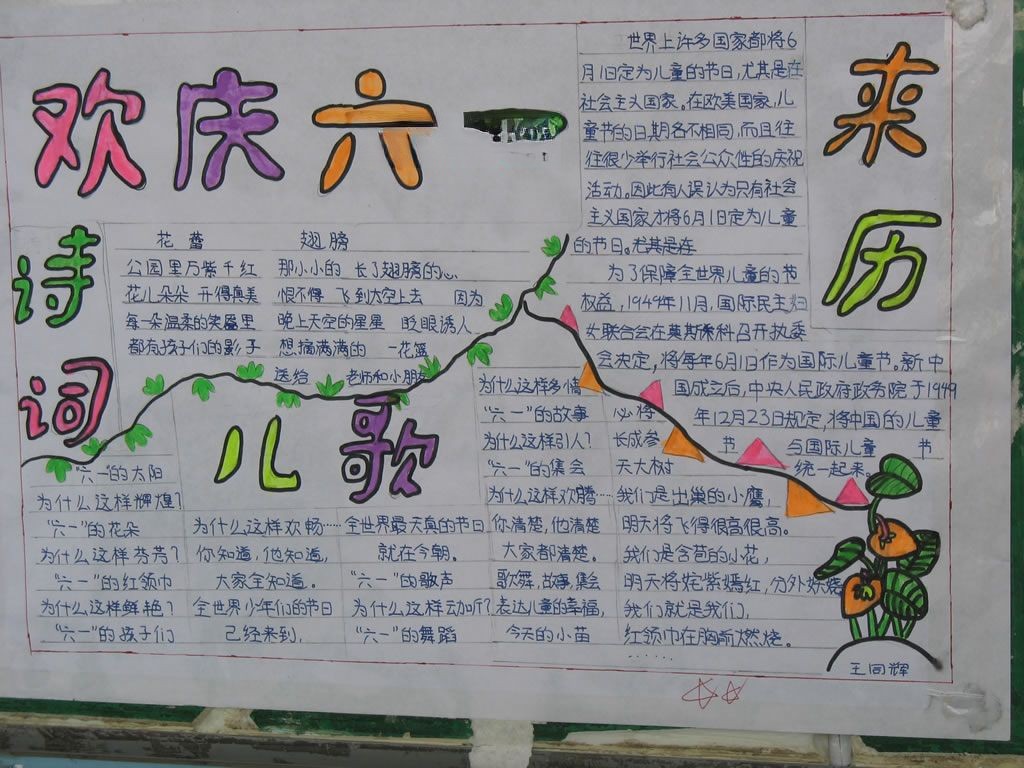 欢庆六一
世界上许多国家都将6
月1日定为儿童的节日,尤其是在
社会主义国家。在欧美国家,儿
童节的日期各不相同,而且往
往很少举行社会公众性的庆祝
活动。因此有人误认为只有社会
主义国家才将6月1日定为儿童
的节日。尤其是在
为了保障全世界儿童的节
权益,1949年11月,国际民主妇
女联合会在莫斯科召开执委
会决定,将每年6月1日作为国际儿童节。新中
国成立后,中央人民政府政务院于1949
年12月23日规定,将中国的儿童
节 与国际儿童 节
统一起来。
来历
诗词
花蕾
公园里万紫千红
花儿朵朵 开得真美
每一朵温柔的笑靥里
都有孩子们的影子
翅膀
那小小的 长了翅膀的心
恨不得 飞到太空上去 因为
晚上天空的星星 眨眼诱人
想摘满满的 一花篮
送给 老师和小朋
儿歌
“六一”的太阳
为什么这样辉煌?
“六一”的花朵
为什么这样芬芳?
“六一”的红领巾
为什么这样鲜艳?
“六一”的孩子们
为什么这样欢畅…
你知道,他知道,
大家全知道。
全世界少年们的节日
已经来到,
全世界最天真的节日
就在今朝。
“六一”的歌声
为什么这样动听?
“六一”的舞蹈
为什么这样多情
“六一”的故事
为什么这样引人?
“六一”的集会
为什么这样欢腾…
你清楚,他清楚
大家都清楚。
歌舞,故事,集会
表达儿童的幸福,
今天的小苗
必将
长成参
天大树
我们是出巢的小鹰,
明天将飞得很高很高。
我们是含苞的小花,
明天将姹紫嫣红,分外妖娆
我们就是我们,
红领巾在胸前燃烧。
……
王同辉